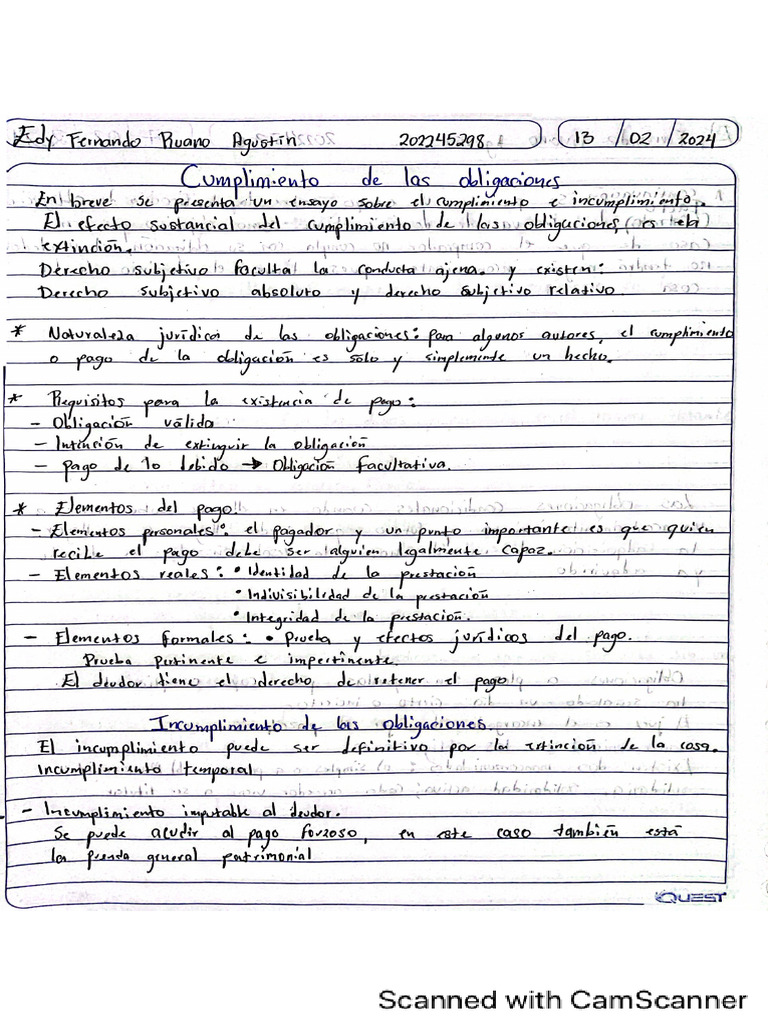 Edy Fernando Ruano Agustín 202245298 13 / 02 / 2024
Cumplimiento de las obligaciones
En breve se presenta un ensayo sobre el cumplimiento e incumplimiento.
El efecto sustancial del cumplimiento de las obligaciones es la
extinción.
Derecho subjetivo facultal la conducta ajena. y existen:
Derecho subjetivo absoluto y derecho subjetivo relativo.
* Naturaleza jurídica de las obligaciones: para algunos autores, el cumplimiento
o pago de la obligación es solo y simplemente un hecho.
* Requisitos para la existencia de pago:
- Obligación válida
- Intención de extinguir la obligación
- pago de lo debido → Obligación facultativa.
* Elementos del pago:
- Elementos personales: el pagador y un punto importante es que quien
recibe el pago debe ser alguien legalmente capaz.
- Elementos reales: • Identidad de la prestación
• Indivisibilidad de la prestación
• Integridad de la prestación.
- Elementos formales: • Prueba y efectos jurídicos del pago.
Prueba pertinente e impertinente.
El deudor tiene el derecho de retener el pago
Incumplimiento de las obligaciones.
El incumplimiento puede ser definitivo por la extinción de la cosa.
Incumplimiento temporal
- Incumplimiento imputable al deudor.
Se puede acudir al pago forzoso, en este caso también está
la prenda general patrimonial
QUEST
Scanned with CamScanner